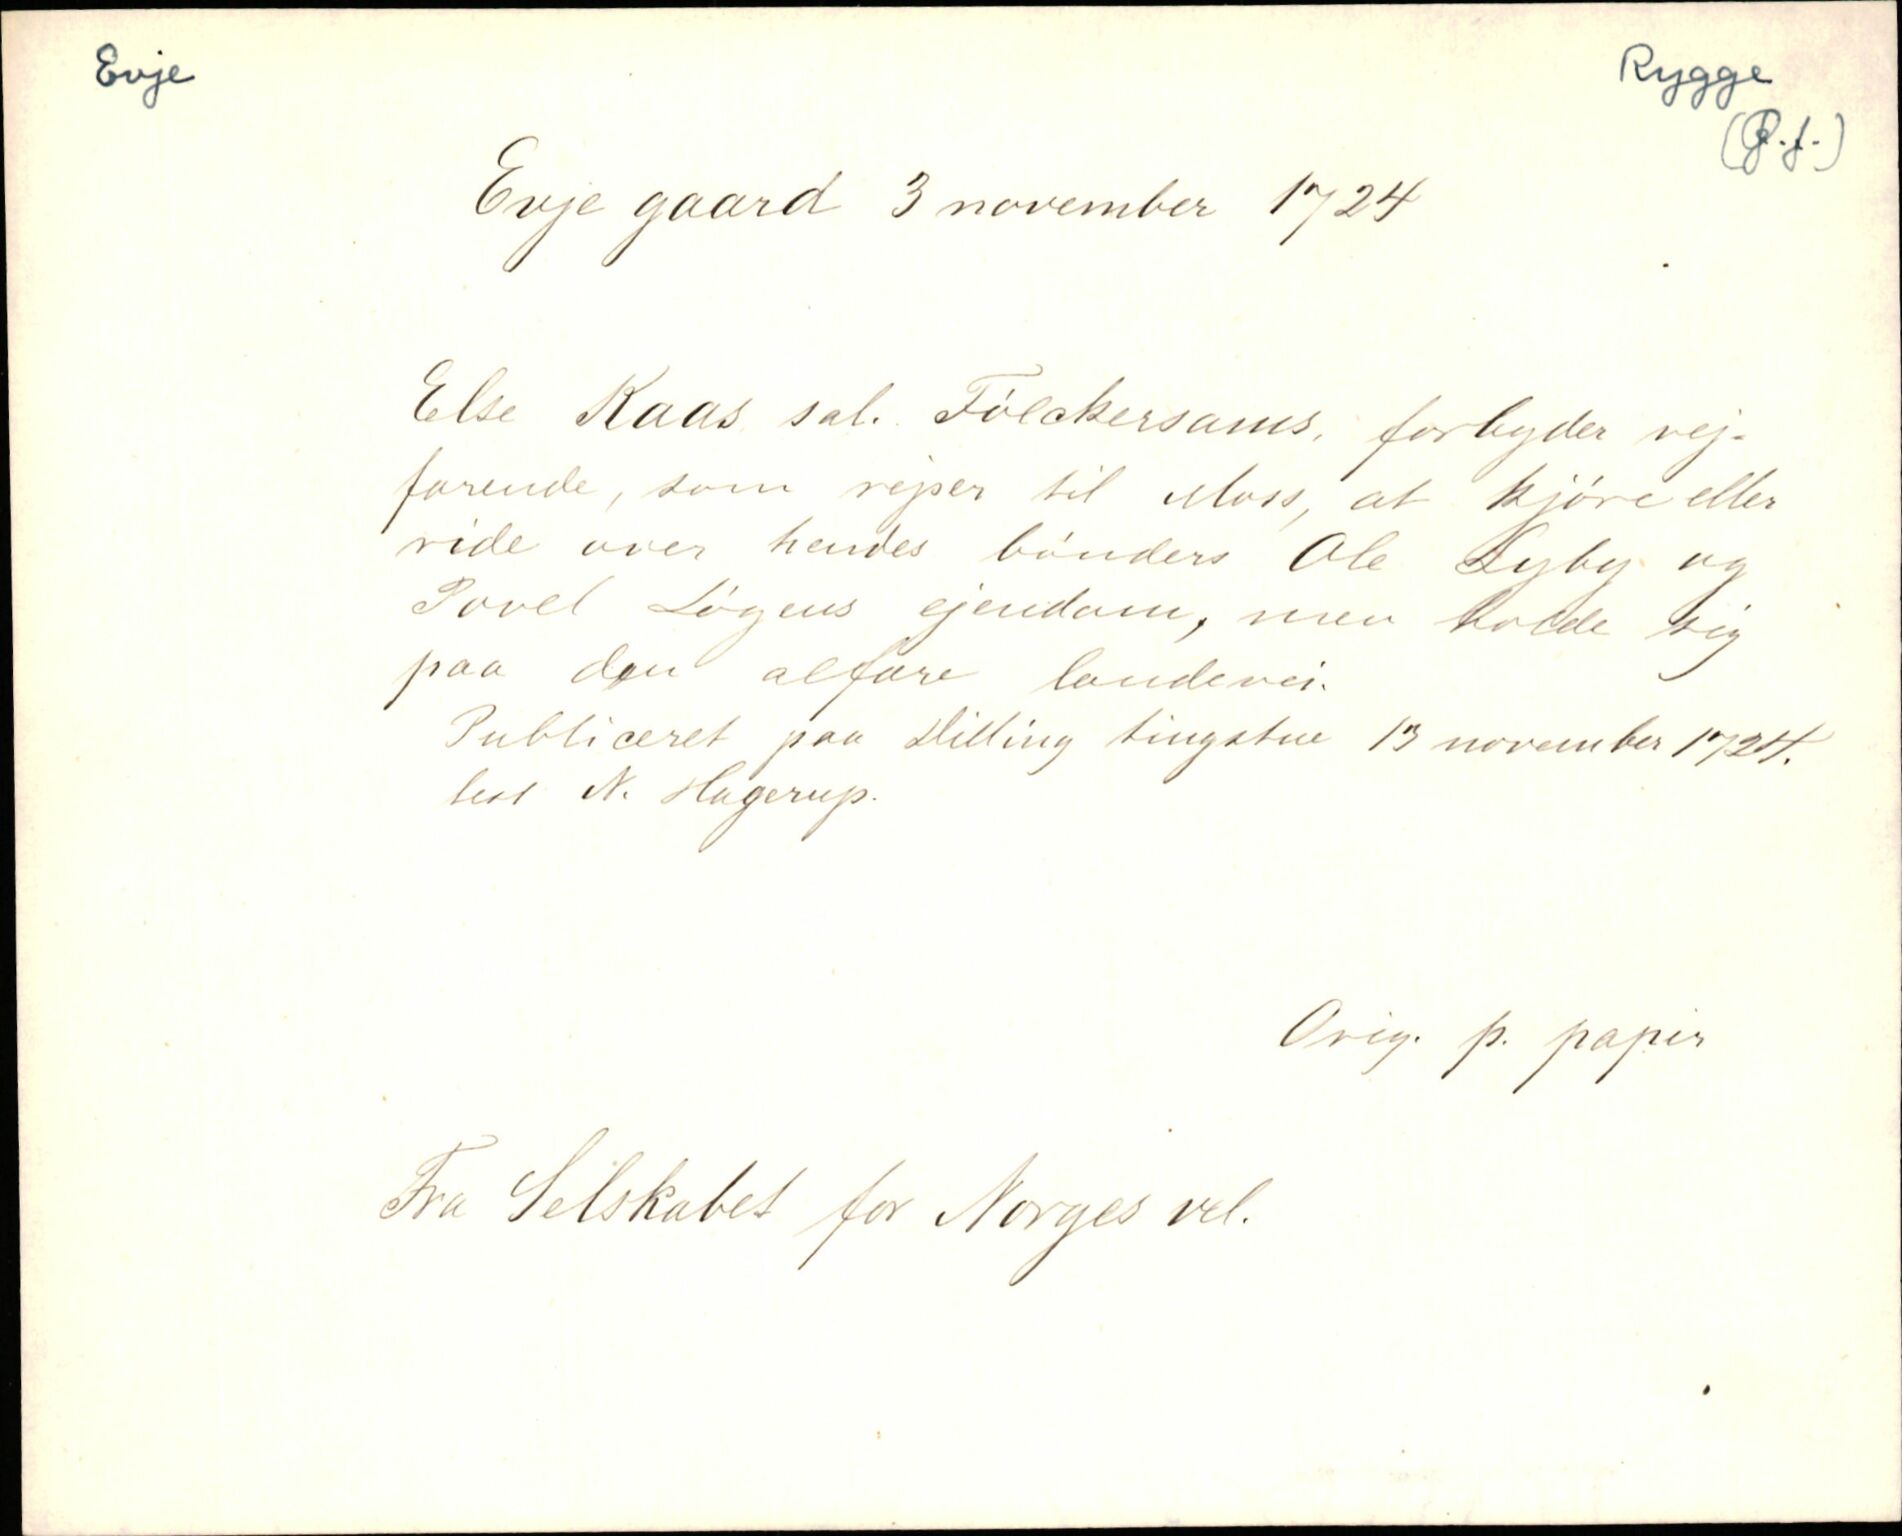 Evje
Rygge
(P.f.)
Evje gaard 3 november 1724
Else Kaas sal. Fölckersams, forbyder vej-
farende, som rejser til Moss, at kjöre eller
ride over hendes bönders Ole Lyby og
Povel Lögens ejendom, men holde sig
paa den alfare landevei.
Publiceret paa Dilling tingstue 13 november 1724.
test N. Hagerup.
Orig. p. papir
Fra Selskabet for Norges vel.